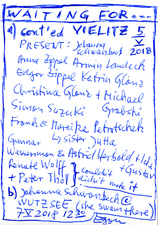 WAITING FOR...
a) cont'ed VIELITZ 5
PRESENT: Johanna V
Schwarzbeck 2018
Anna Zippel Armin Landeck
Edgar Zippel Katrin Glanz
Christina Glanz + Michael
Simon Suzuki Grabski
Frank & Mareike Petratschek
Gunnar & sister Jutta
Wessermann & Astrid Herbold + Ida
Renate Wolff + Gustav
+ Peter Thol couldn't make it
b) Johanna Schwarzbeck @
WUTZSEE (she swam there)
7 X 2018 12 30